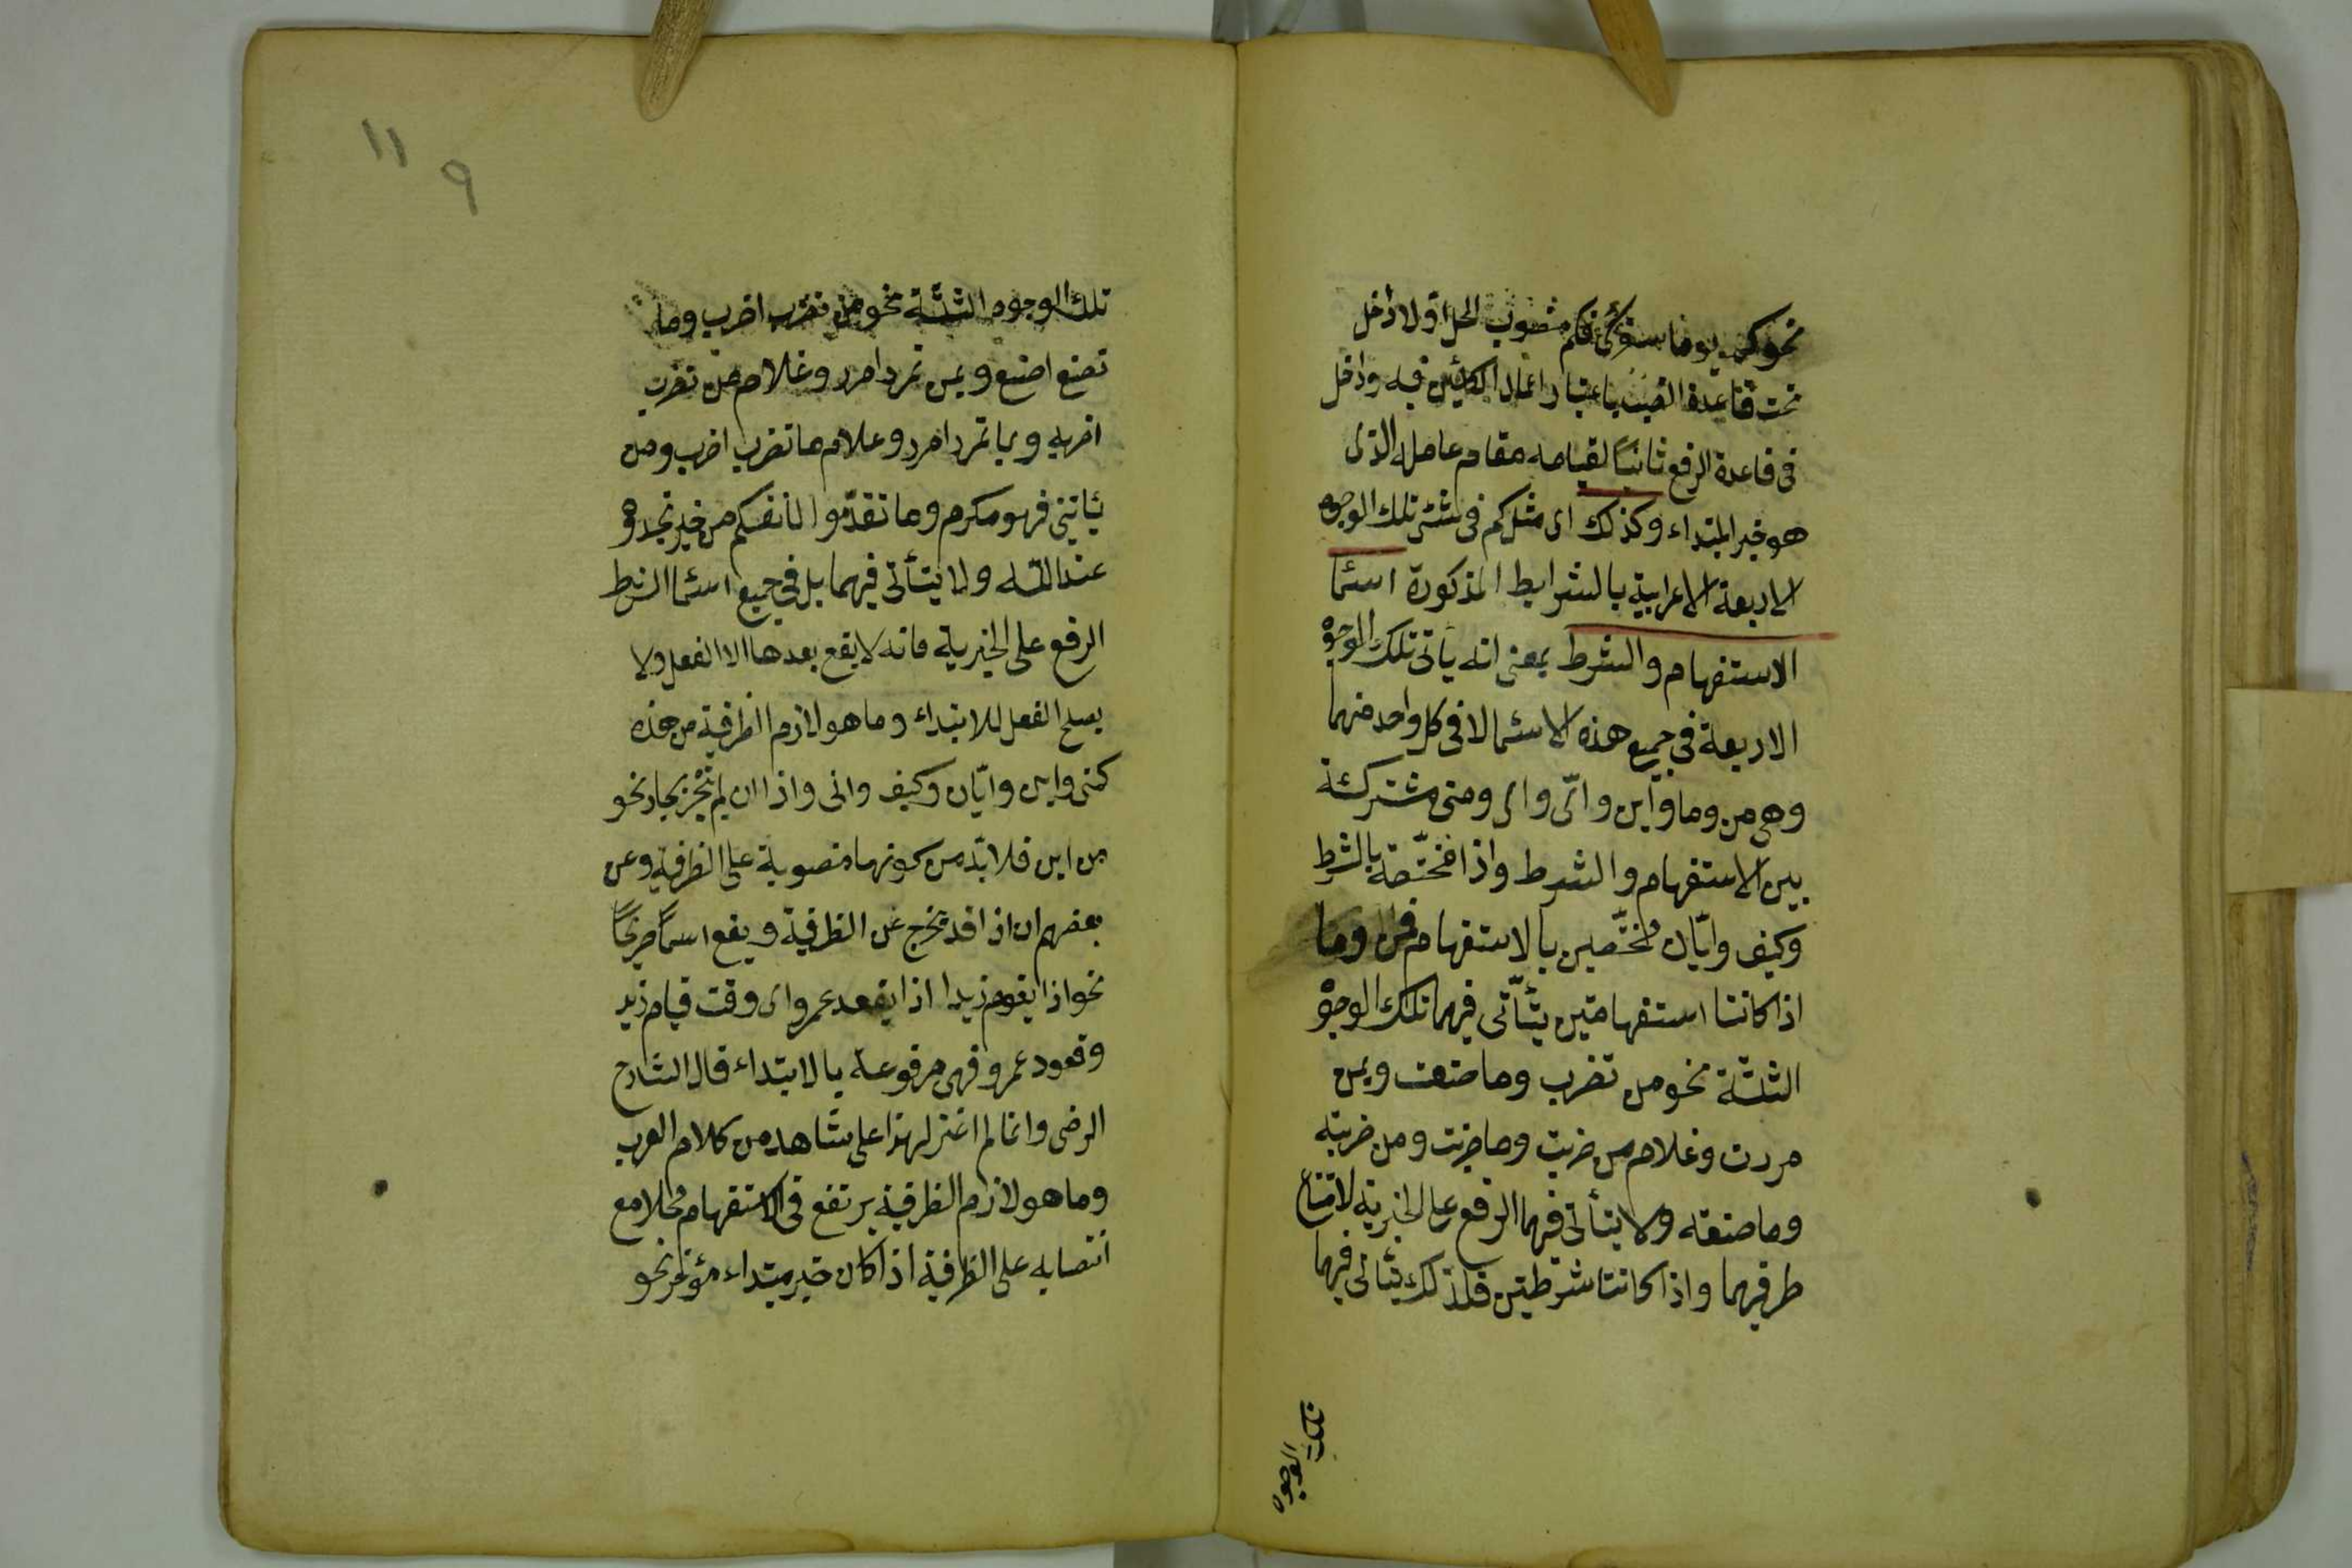 نحو كم يوما سفرك فكم منصوب المحل اولا داخل
تحت قاعدة النصب باعتبار اعمال الكائن فيه وداخل
فى قاعدة الرفع ثانيًا لقيامه مقام عامله الذى
هو خبر المبتداء وكذلك اى مثل كم فى تلك الوجوه
الاربعة الاعرابية بالشرايط المذكورة اسما
الاستفهام والشرط بمعنى انه ياتى تلك الوجوه
الاربعة فى جميع هذه الاسما لا فى كل واحد منهما
وهى من وما واين وانّى واى ومتى مشتركة
بين الاستفهام والشرط واذا مختصّة بالشرط
وكيف وايّان مختّصين بالاستفهام فمن وما
اذا كانتا استفهامتين يتأتى فيهما تلك الوجوه
الثلثة نحو من تضرب وما صنعت وبمن
مررت وغلام من ضربت وما ضربت ومن ضربته
وما صنعته ولا يتأتى فيهما الرفع على الخبرية لامتناع
ظرفيهما واذا كانتا شرطيتين فلذلك يتأتى فيهما
تلك الوجوه
١١
٩
تلك الوجوه الثلثة نحو من تضرب اضرب وما
تصنع اصنع وبمن تمرر امرر وغلام من تضرب
اضربه وبما تمرر امرر وغلام ما تضرب اضرب ومن
ياتينى فهو مكرم وما تقدّموا لانفسكم من خير تجدوه
عند اللّه ولا يتأتى فيهما بل فى جميع اسما الشرط
الرفع على الخبرية فانه لا يقع بعدها الا الفعل ولا
يصلح الفعل للابتداء وما هو لازم الظرفية من هذه
كمتى واين وايّان وكيف وانى واذا ان لم تنجرّ بجار نحو
من اين فلا بدّ من كونها منصوبة على الظرفية وعن
بعضهم ان اذا قد تخرج عن الظرفية ويقع اسمًا صريحًا
نحو اذا يقوم زيدا اذا يقعد عمرو اى وقت قيام زيد
وقعود عمرو فهى مرفوعة بالابتداء قال الشارح
الرضى وانا لم اعثر لهذا على شاهد من كلام العرب
وما هو لازم الظرفية يرتفع فى الاستفهام محلا مع
انتصابه على الظرفية اذا كان خبر مبتداء مؤخر نحو